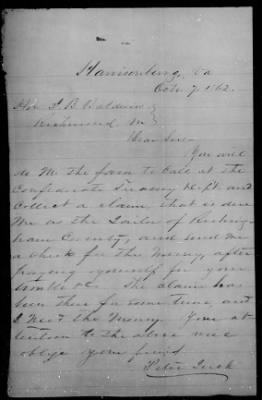 Harrisonburg, Va
Octr 7, 1862.
Hon J. B. Baldwin
Richmond Va
Dear Sir
You will
do me the favor to call at the
Confederate Treasury Dept and
collect a claim, that is due
me as the Jailor of Rocking
ham County, and send me
a check for the money, after
paying yourself for your
trouble &c. The claim has
been there for some time, and
I need the money. Your at
tention to the above will
oblige your friend
Peter